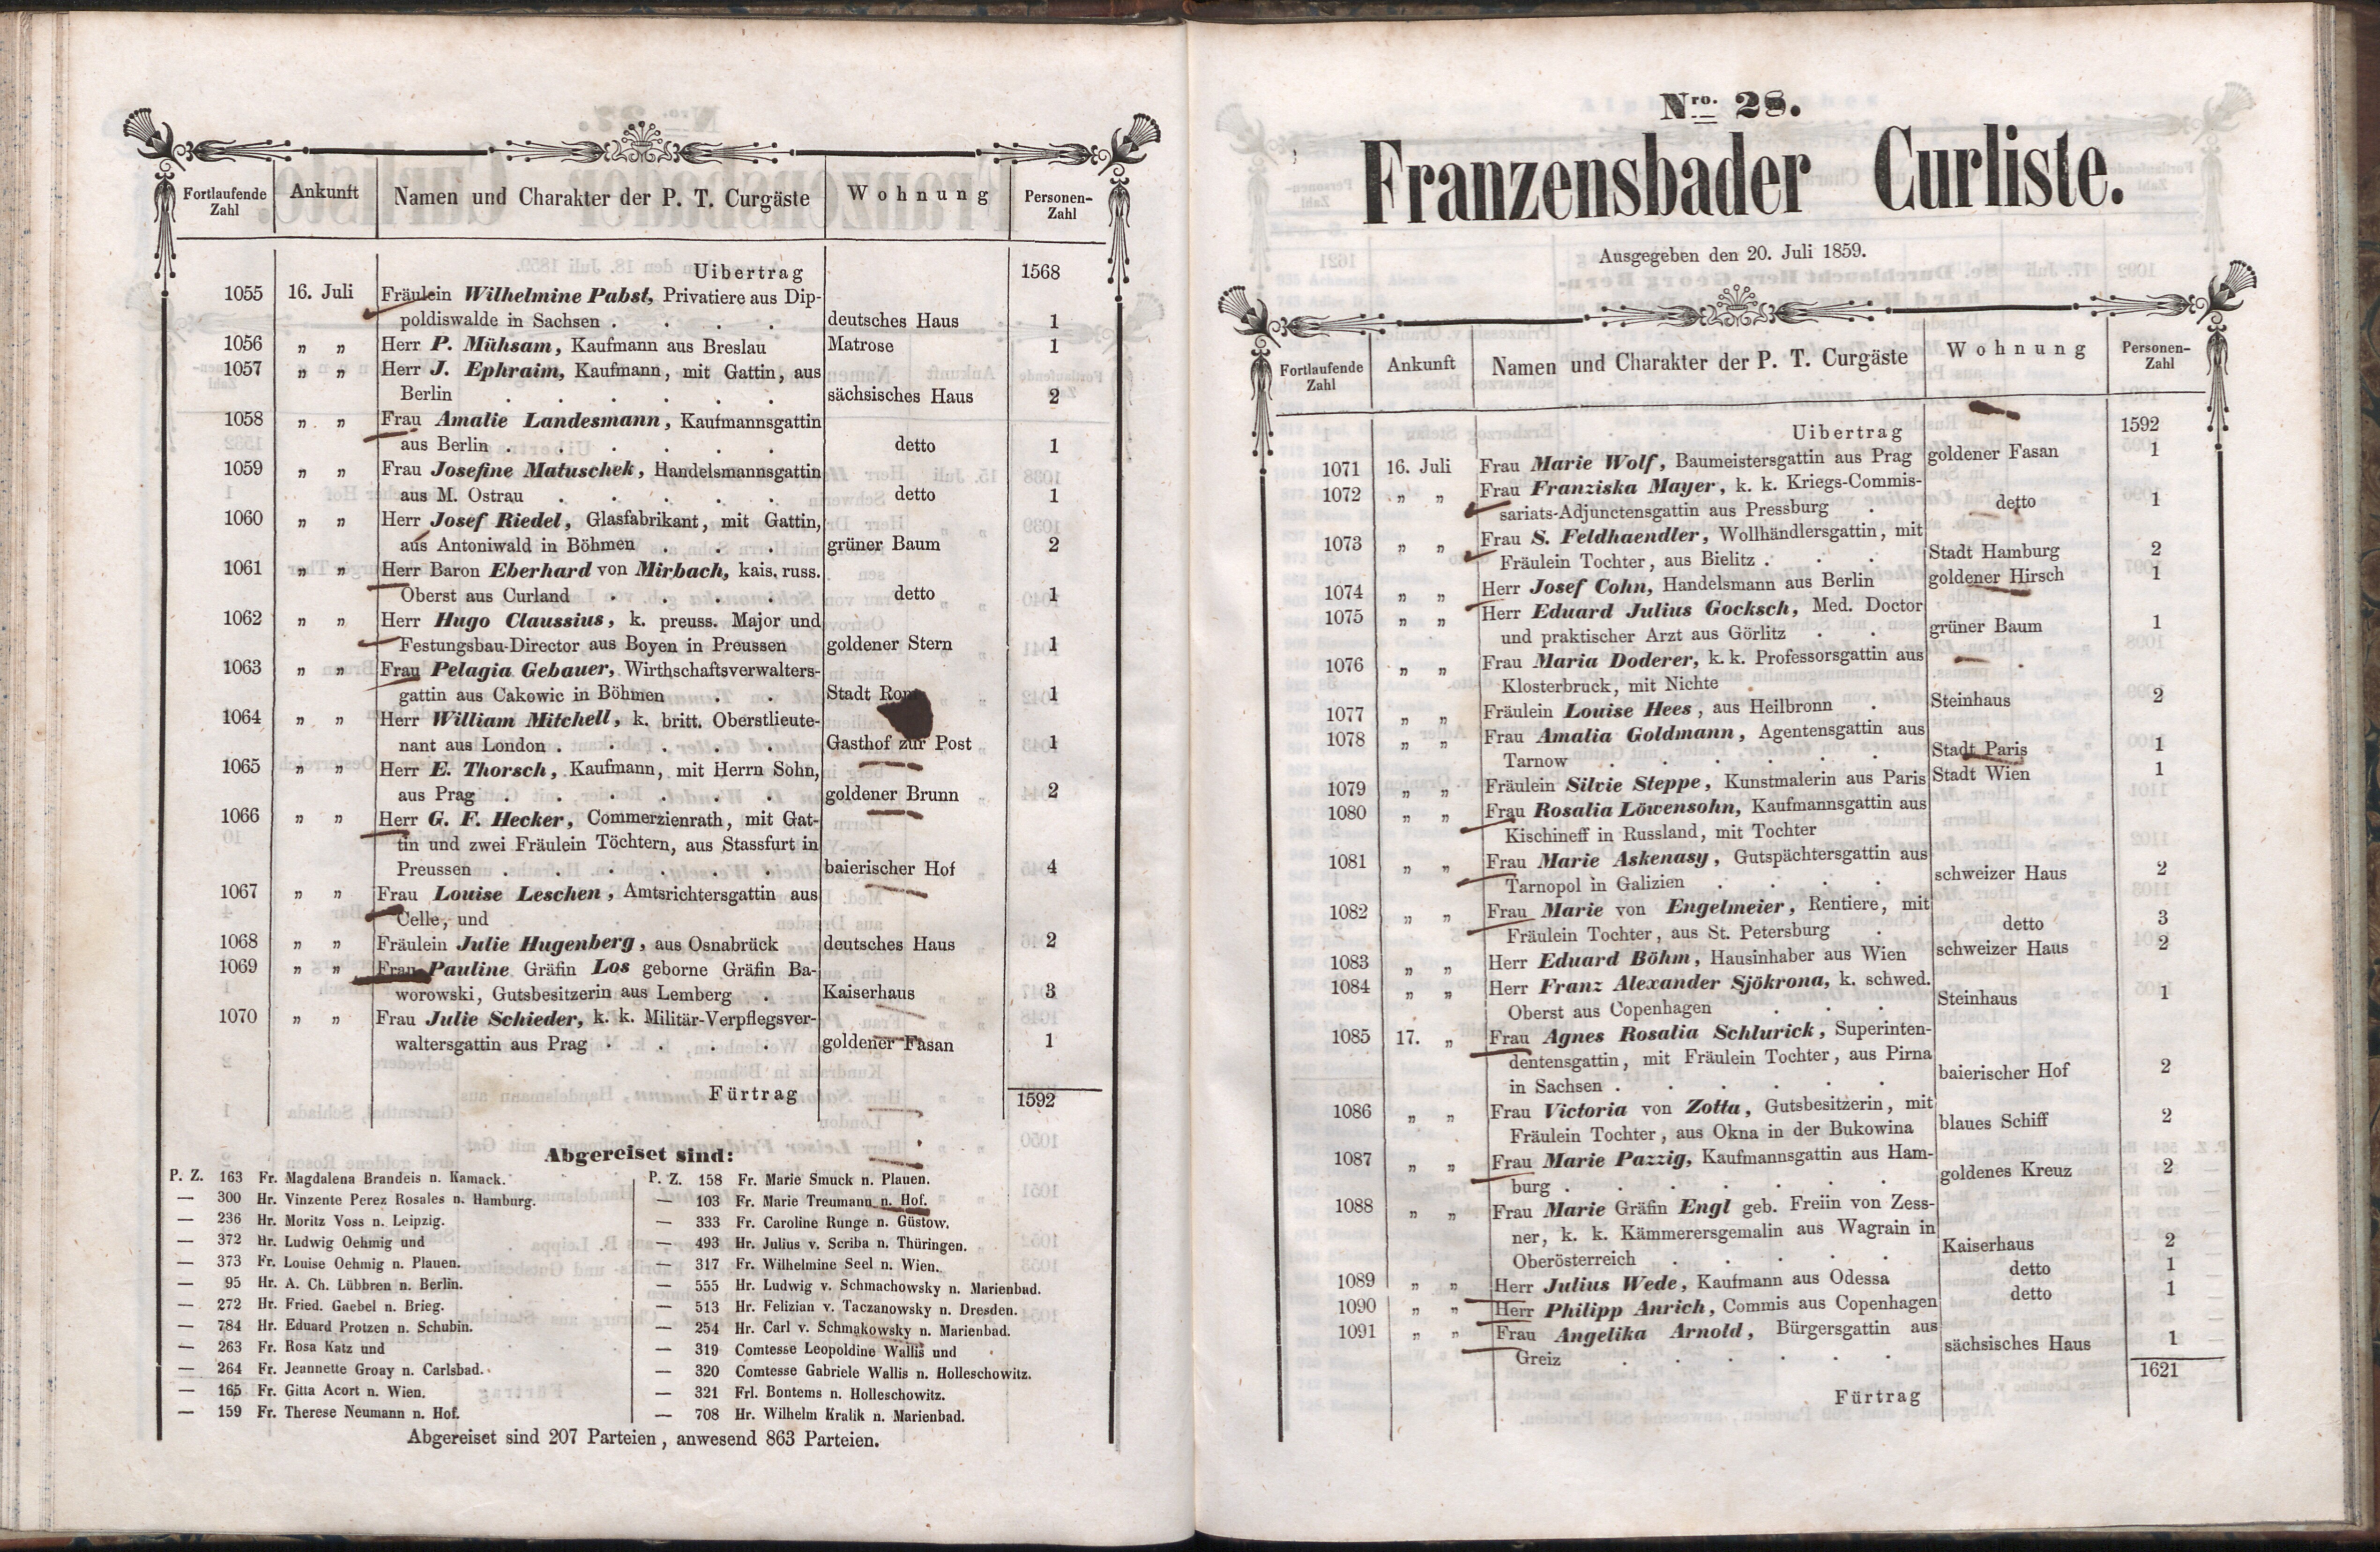 Fortlaufende Zahl Ankunft Namen und Charakter der P. T. Curgäste Wohnung Personen-Zahl
Uibertrag 1568
1055 16. Juli Fräulein Wilhelmine Pabst, Privatiere aus Dip-
poldiswalde in Sachsen . . . . deutsches Haus 1
1056 „ „ Herr P. Mühsam, Kaufmann aus Breslau Matrose 1
1057 „ „ Herr J. Ephraim, Kaufmann, mit Gattin, aus
Berlin . . . . . . sächsisches Haus 2
1058 „ „ Frau Amalie Landesmann, Kaufmannsgattin
aus Berlin . . . . . . detto 1
1059 „ „ Frau Josefine Matuschek, Handelsmannsgattin
aus M. Ostrau . . . . . detto 1
1060 „ „ Herr Josef Riedel, Glasfabrikant, mit Gattin,
aus Antoniwald in Böhmen . . . grüner Baum 2
1061 „ „ Herr Baron Eberhard von Mirbach, kais. russ.
Oberst aus Curland . . . . detto 1
1062 „ „ Herr Hugo Claussius, k. preuss. Major und
Festungsbau-Director aus Boyen in Preussen goldener Stern 1
1063 „ „ Frau Pelagia Gebauer, Wirthschaftsverwalters-
gattin aus Cakowic in Böhmen . . Stadt Rom 1
1064 „ „ Herr William Mitchell, k. britt. Oberstlieute-
nant aus London . . . . . Gasthof zur Post 1
1065 „ „ Herr E. Thorsch, Kaufmann, mit Herrn Sohn,
aus Prag . . . . . . goldener Brunn 2
1066 „ „ Herr G. F. Hecker, Commerzienrath, mit Gat-
tin und zwei Fräulein Töchtern, aus Stassfurt in
Preussen . . . . . . baierischer Hof 4
1067 „ „ Frau Louise Leschen, Amtsrichtersgattin aus
Celle, und
1068 „ „ Fräulein Julie Hugenberg, aus Osnabrück deutsches Haus 2
1069 „ „ Frau Pauline Gräfin Los geborne Gräfin Ba-
worowski, Gutsbesitzerin aus Lemberg . Kaiserhaus 3
1070 „ „ Frau Julie Schieder, k. k. Militär-Verpflegsver-
waltersgattin aus Prag . . . . goldener Fasan 1
Fürtrag 1592
Abgereiset sind:
P. Z. 163 Fr. Magdalena Brandeis n. Kamack.
— 300 Hr. Vinzente Perez Rosales n. Hamburg.
— 236 Hr. Moritz Voss n. Leipzig.
— 372 Hr. Ludwig Oehmig und
— 373 Fr. Louise Oehmig n. Plauen.
— 95 Hr. A. Ch. Lübbren n. Berlin.
— 272 Hr. Fried. Gaebel n. Brieg.
— 784 Hr. Eduard Protzen n. Schubin.
— 263 Fr. Rosa Katz und
— 264 Fr. Jeannette Groay n. Carlsbad.
— 165 Fr. Gitta Acort n. Wien.
— 159 Fr. Therese Neumann n. Hof.
P. Z. 158 Fr. Marie Smuck n. Plauen.
— 103 Fr. Marie Treumann n. Hof.
— 333 Fr. Caroline Runge n. Güstow.
— 493 Hr. Julius v. Scriba n. Thüringen.
— 317 Fr. Wilhelmine Seel n. Wien.
— 555 Hr. Ludwig v. Schmachowsky n. Marienbad.
— 513 Hr. Felizian v. Taczanowsky n. Dresden.
— 254 Hr. Carl v. Schmakowsky n. Marienbad.
— 319 Comtesse Leopoldine Wallis und
— 320 Comtesse Gabriele Wallis n. Holleschowitz.
— 321 Frl. Bontems n. Holleschowitz.
— 708 Hr. Wilhelm Kralik n. Marienbad.
Abgereiset sind 207 Parteien, anwesend 863 Parteien.
Nro. 28.
Franzensbader Curliste.
Ausgegeben den 20. Juli 1859.
Fortlaufende Zahl Ankunft Namen und Charakter der P. T. Curgäste Wohnung Personen-Zahl
Uibertrag 1592
1071 16. Juli Frau Marie Wolf, Baumeistersgattin aus Prag goldener Fasan 1
1072 „ „ Frau Franziska Mayer, k. k. Kriegs-Commis-
sariats-Adjunctensgattin aus Pressburg . detto 1
1073 „ „ Frau S. Feldhaendler, Wollhändlersgattin, mit
Fräulein Tochter, aus Bielitz . . . Stadt Hamburg 2
1074 „ „ Herr Josef Cohn, Handelsmann aus Berlin goldener Hirsch 1
1075 „ „ Herr Eduard Julius Gocksch, Med. Doctor
und praktischer Arzt aus Görlitz . . grüner Baum 1
1076 „ „ Frau Maria Doderer, k. k. Professorsgattin aus
Klosterbruck, mit Nichte
1077 „ „ Fräulein Louise Hees, aus Heilbronn . Steinhaus 2
1078 „ „ Frau Amalia Goldmann, Agentensgattin aus
Tarnow . . . . . . Stadt Paris 1
1079 „ „ Fräulein Silvie Steppe, Kunstmalerin aus Paris Stadt Wien 1
1080 „ „ Frau Rosalia Löwensohn, Kaufmannsgattin aus
Kischineff in Russland, mit Tochter
1081 „ „ Frau Marie Askenasy, Gutspächtersgattin aus
Tarnopol in Galizien . . . . schweizer Haus 2
1082 „ „ Frau Marie von Engelmeier, Rentiere, mit
Fräulein Tochter, aus St. Petersburg . detto 3
1083 „ „ Herr Eduard Böhm, Hausinhaber aus Wien schweizer Haus 2
1084 „ „ Herr Franz Alexander Sjökrona, k. schwed.
Oberst aus Copenhagen . . . Steinhaus 1
1085 17. „ Frau Agnes Rosalia Schlurick, Superinten-
dentensgattin, mit Fräulein Tochter, aus Pirna
in Sachsen . . . . . . baierischer Hof 2
1086 „ „ Frau Victoria von Zotta, Gutsbesitzerin, mit
Fräulein Tochter, aus Okna in der Bukowina blaues Schiff 2
1087 „ „ Frau Marie Pazzig, Kaufmannsgattin aus Ham-
burg . . . . . . . goldenes Kreuz 2
1088 „ „ Frau Marie Gräfin Engl geb. Freiin von Zess-
ner, k. k. Kämmerersgemalin aus Wagrain in
Oberösterreich . . . . . Kaiserhaus 2
1089 „ „ Herr Julius Wede, Kaufmann aus Odessa detto 1
1090 „ „ Herr Philipp Anrich, Commis aus Copenhagen detto 1
1091 „ „ Frau Angelika Arnold, Bürgersgattin aus
Greiz . . . . . . sächsisches Haus 1
Fürtrag 1621